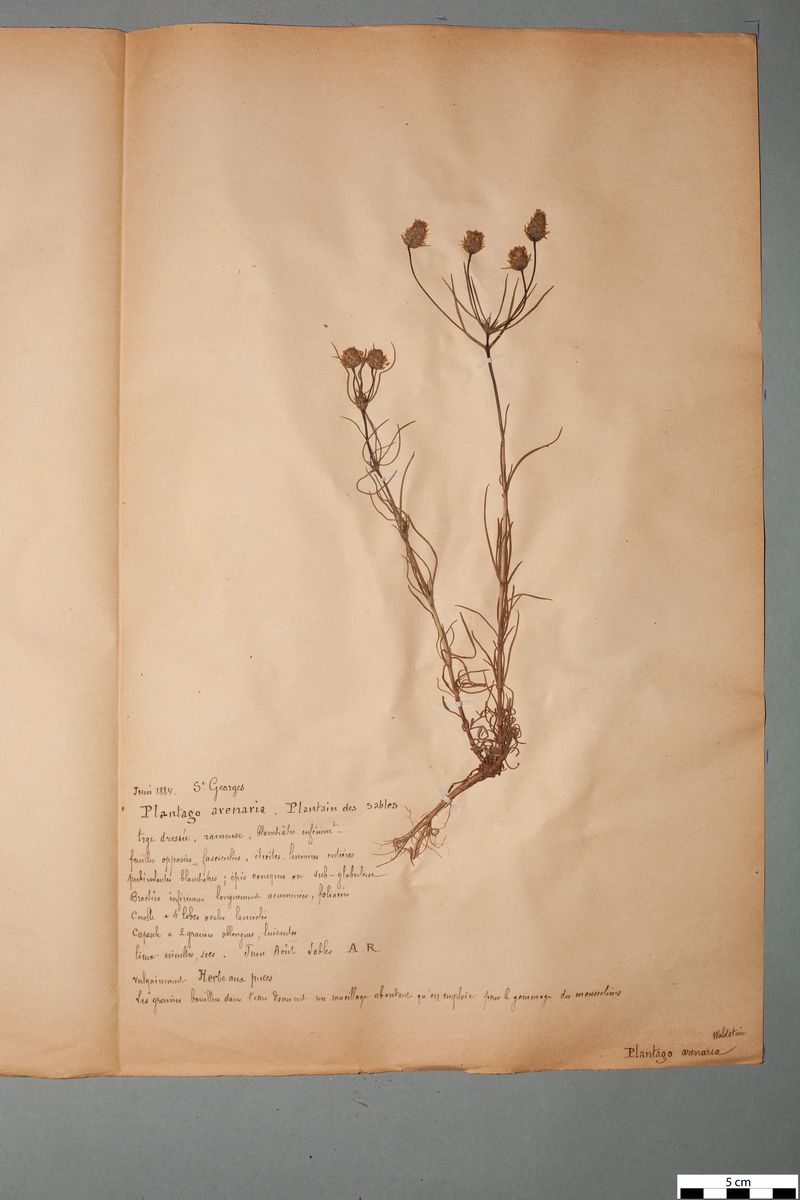 Juin 1884. St Georges
Plantago arenaria. Plantain des Sables
tige dressée, rameuse, blanchâtre inférieurt
feuilles opposées, fasciculées, étroites, linéaires entières
pubérulentes blanchâtres; épis coniques ou sub-globuleux
Bractées inférieures longuement acuminées, foliacées
Corolle à 4 lobes ovales lancéolés
Capsule à 2 graines oblongues, luisantes
lieux incultes, secs. Juin Août Sables A R
vulgairement Herbe aux puces
Les graines bouillies dans l'eau donnent un mucillage abondant qu'on emploie pour le gommage des mousselines
Waldstein
Plantago arenaria
5 cm